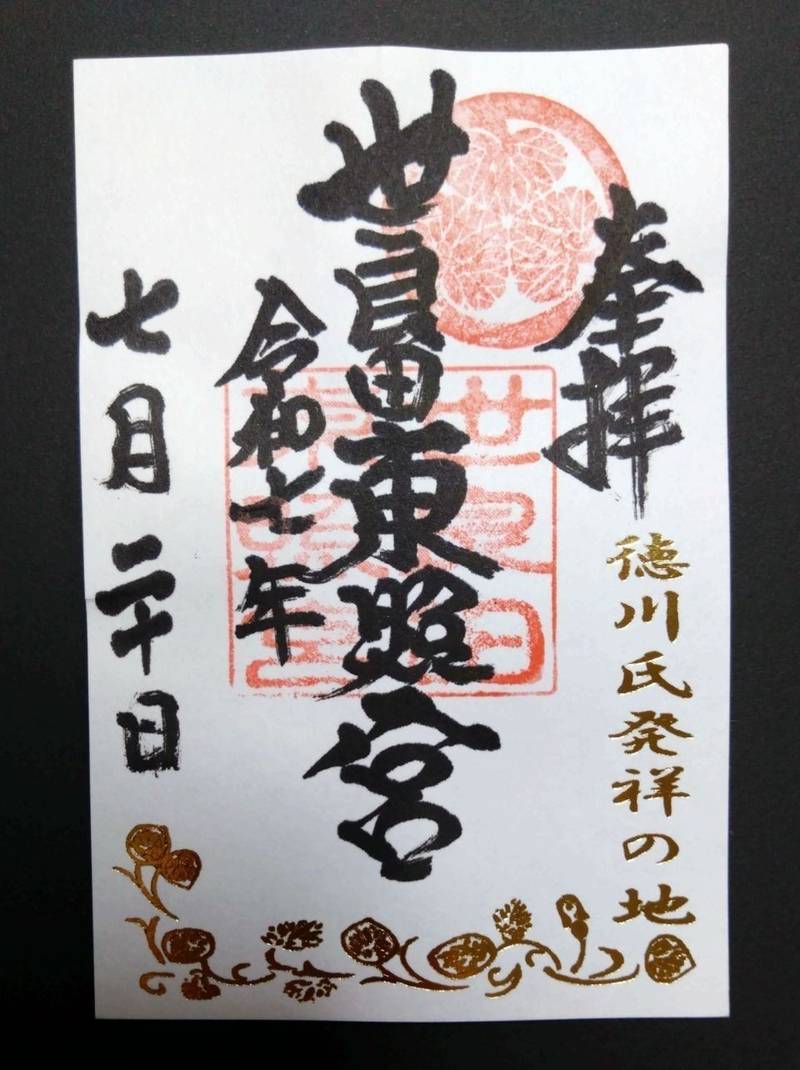 奉拝
徳川氏発祥の地
世良田東照宮
世良田
東照宮
令和七年
七月二十日